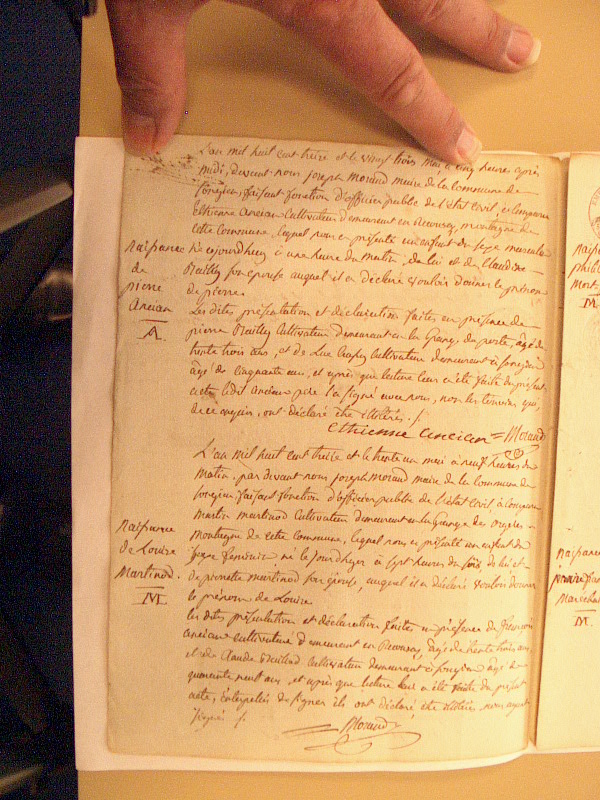 L'an mil huit cent treize et le vingt trois mai, à cinq heure après
midi, devant nous joseph Morand maire de la Commune de
faisant fonction d'officier public de l'état Civil, est comparu
Etienne Ancian Cultivateur demeurant en montagne de
cette Commune, lequel nous a présenté un enfant du sexe masculin
Naissance
de
pierre
Ancian
A.
né cejourdhuy à une heure du matin, de lui et de Claudine
Mailley son épouse auquel il a déclaré vouloir donner le prénom
de pierre.
Les dites présentation et déclaration faites en présence de
pierre Mailley Cultivateur demeurant en la Grange du âgé de
trente trois ans, et de Luc Cultivateur demeurant à
âgé de cinquante ans, et après que lecture leur a été faite du présent
acte ledit Ancian père l'a signé avec nous, non les temoins qui,
de ce enquis, ont déclaré être illitérés. /.
ethienne ancian = Morand
L'an mil huit cent treize et le trente un mai à neuf heures du
Matin, par devant nous joseph Morand maire de la Commune de
faisant fonction d'officier public de l'état Civil, à comparu
Martin Martinod Cultivateur demeurant en la Grange des
Montagne de cette Commune, lequel nous a présenté un enfant du
Naissance
de Louise
Martinod.
M.
Sexe feminin né le jourdhyer à sept heures du soir de lui et
de pierrette Martinod son épouse, auquel il a déclaré vouloir donner
le prénom de Louise
les dites présentation et déclaration faites en présence de François
ancian cultivateur demeurant en âgé de trente trois ans,
et de Claude Cultivateur demeurant à âgé de
quarante neuf ans, et après que lecture leur a été faite du présent
acte, interpellés de signer ils ont déclaré être illitérés, nous ayant
signé /.
Morand
Naissance
Mort
M.
Naissance
Marechal
M.